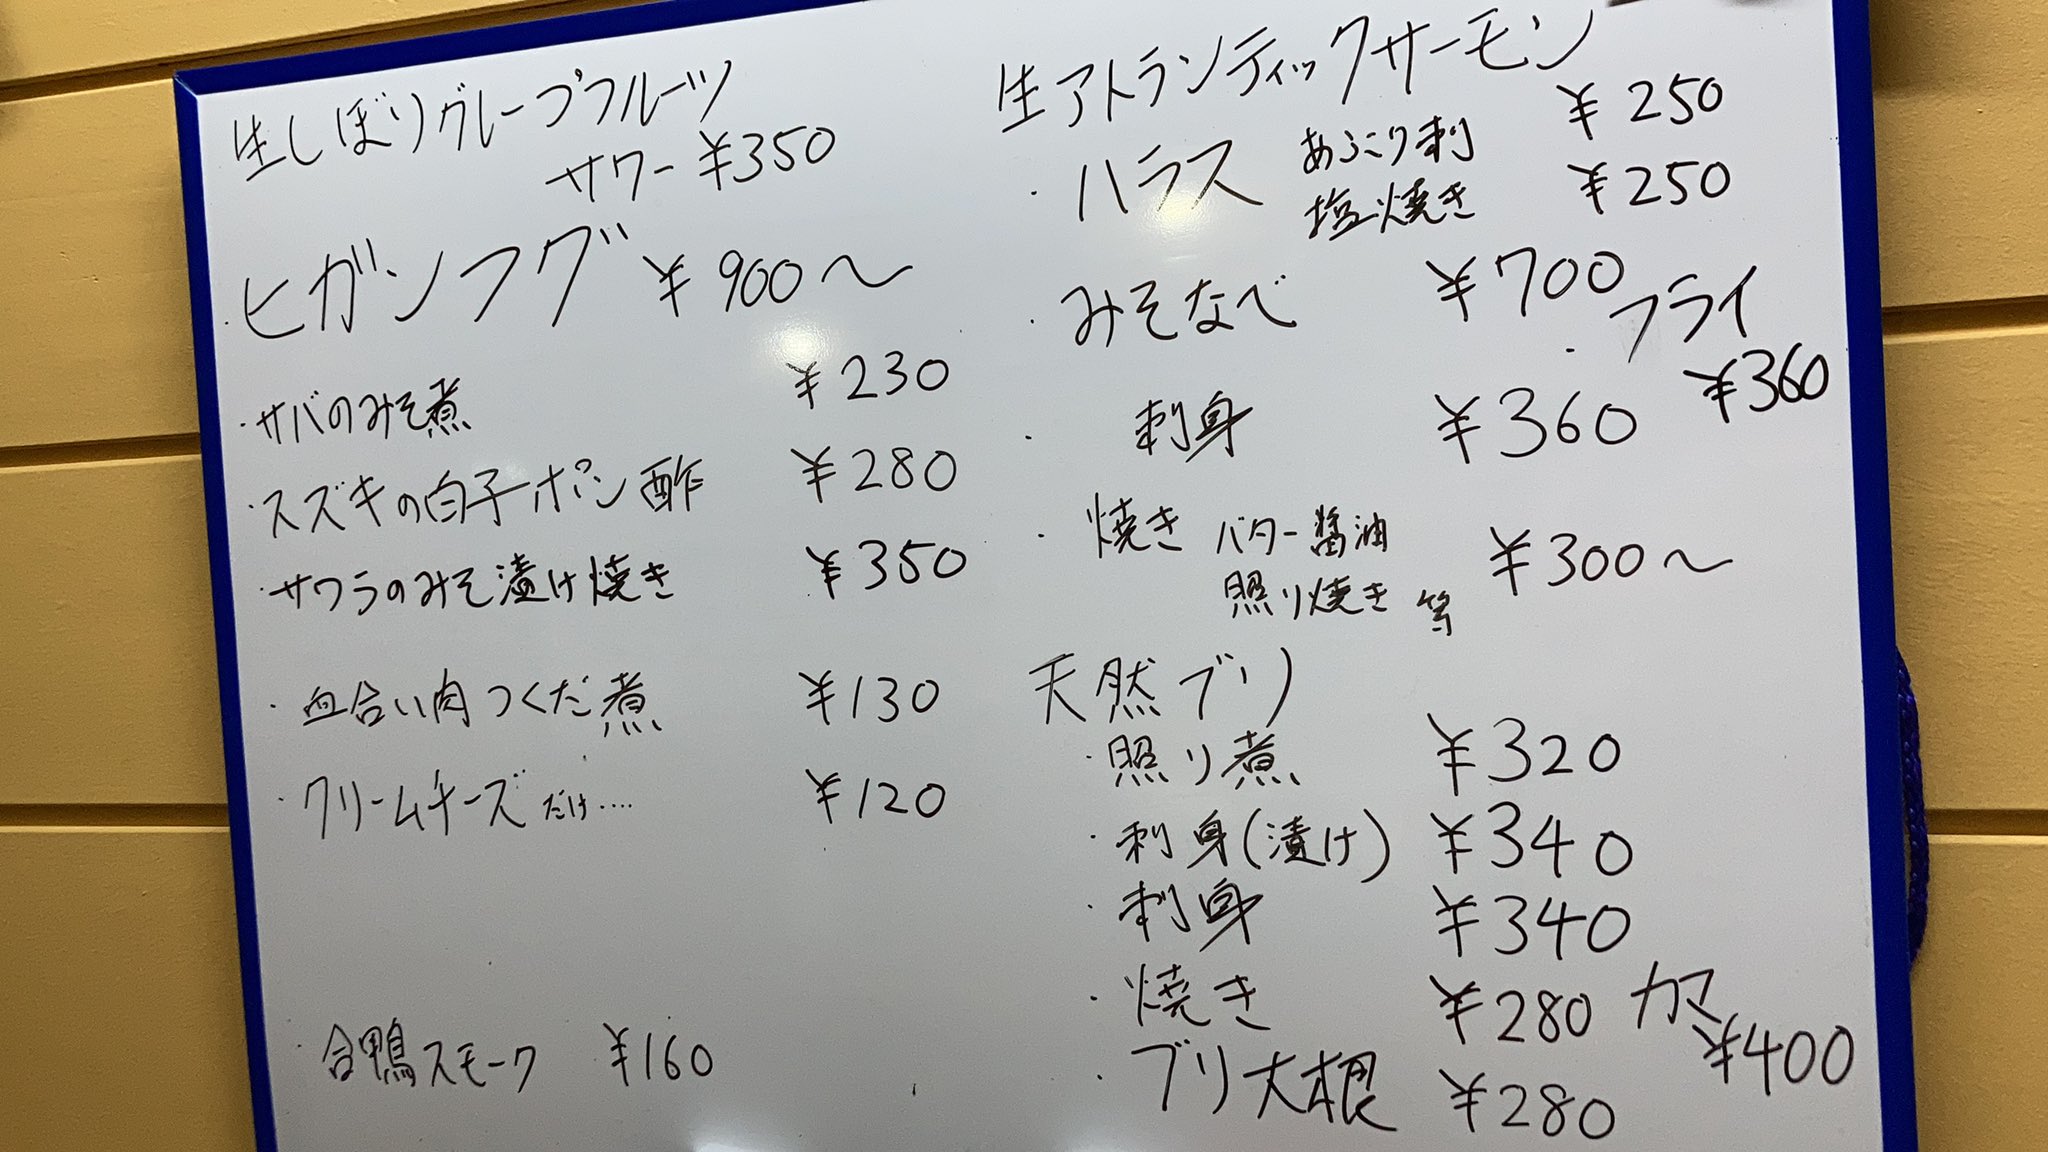 生しぼりグレープフルーツ
サワー ¥350
・ヒガンフグ ¥900〜
・サバのみそ煮 ¥230
・スズキの白子ポン酢 ¥280
・サワラのみそ漬け焼き ¥350
・血合い肉つくだ煮 ¥130
・クリームチーズだけ‥‥ ¥120
・合鴨スモーク ¥160
生アトランティックサーモン
・ハラス あぶり刺 ¥250
塩焼き ¥250
・みそなべ ¥700
・フライ
¥360
・刺身 ¥360
・焼き バター醤油
照り焼き 等 ¥300〜
天然ブリ
・照り煮 ¥320
・刺身(漬け) ¥340
・刺身 ¥340
・焼き ¥280 カマ
¥400
・ブリ大根 ¥280